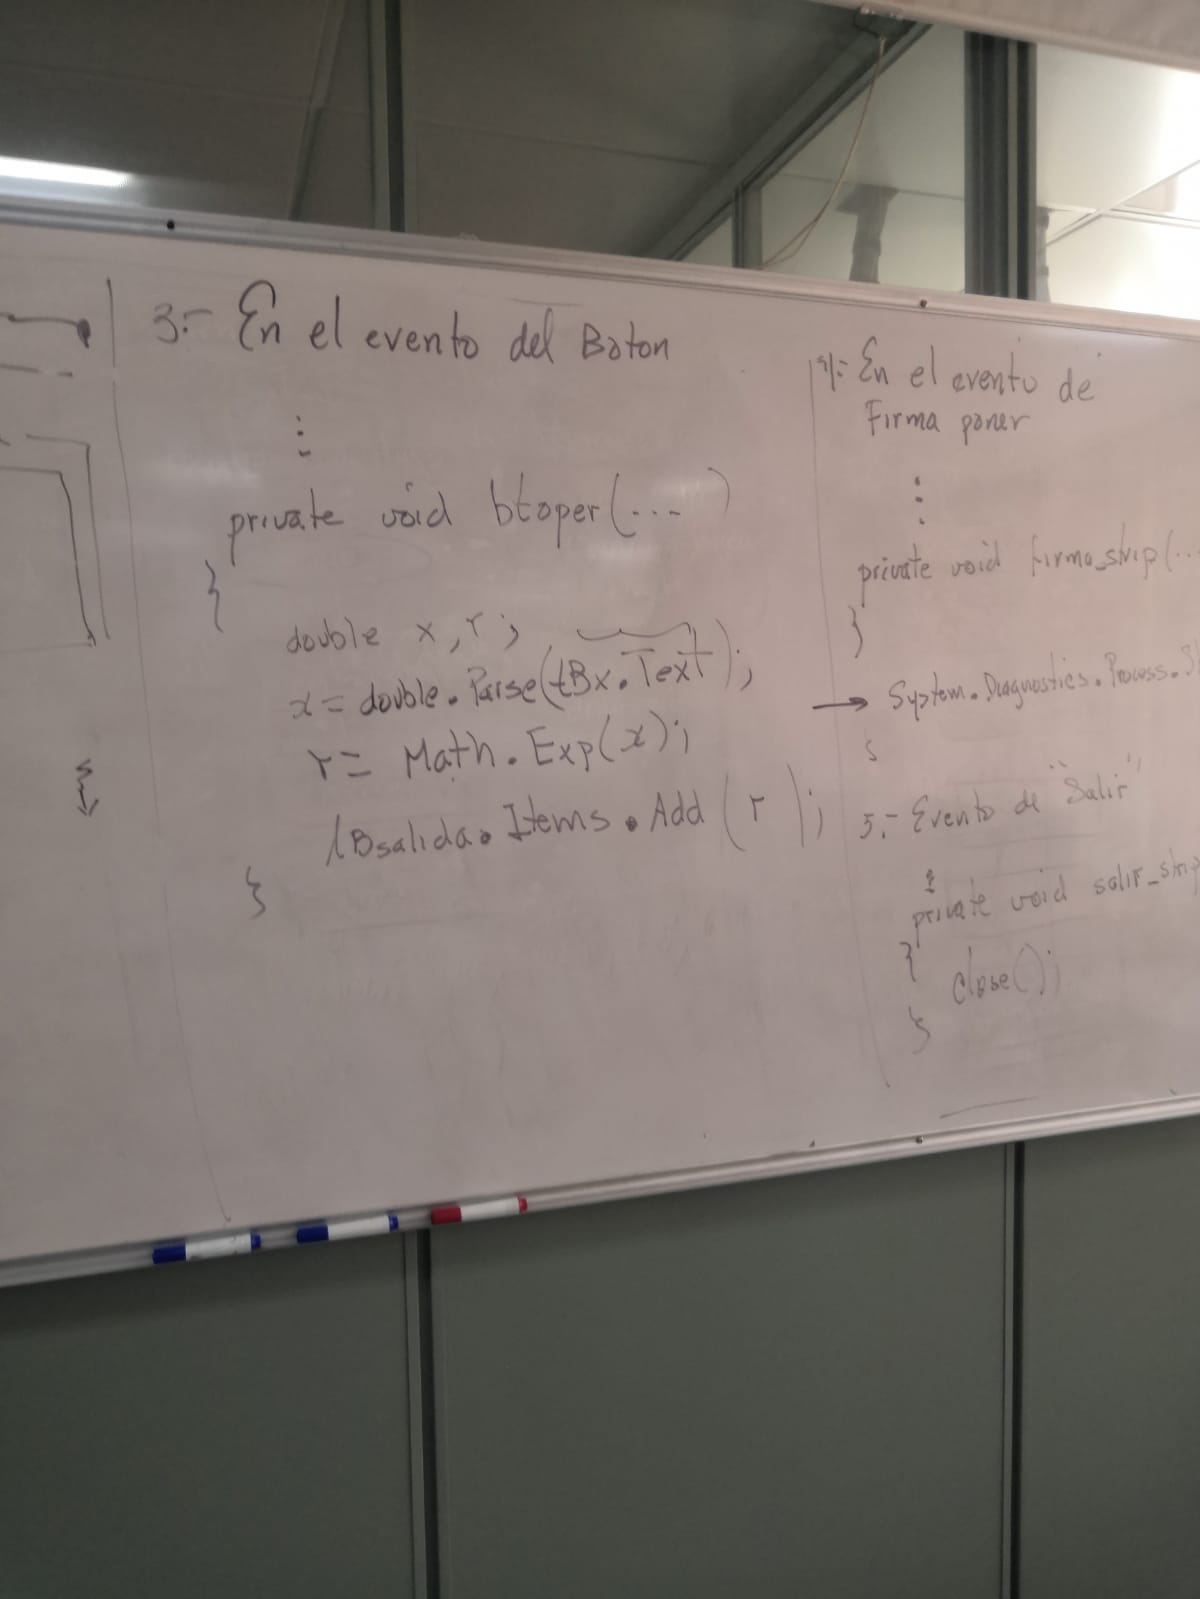 3.- En el evento del Boton
⋮
private void btoper(...)
{
double x,r;
x = double.Parse(tBx.Text);
r = Math.Exp(x);
lBsalida.Items.Add(r);
}
4.- En el evento de
Firma poner
⋮
private void firma_strip(...
{
→ System.Diagnostics.Process.St
}
5.- Evento de "Salir"
⋮
private void salir_strip
{
close();
}